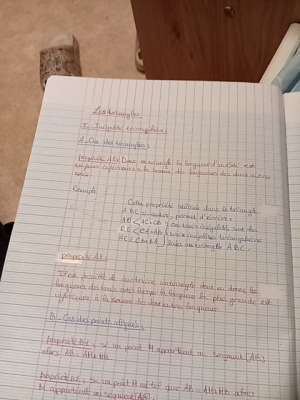 Les triangles
I. Inégalité triangulaire
A. Cas des triangles
Propriété A1: Dans un triangle la longueur d'un côté est
toujours inférieure à la somme des longueurs des deux autres
côtés
Exemple
Cette propriété utilisée dans le triangle
ABC
AB < AC + CB
BC <
AC <
dans un triangle ABC.
propriété A2:
Il est possible de construire un triangle dont on donne les
longueurs des trois côtés lorsque la longueur la plus grande est
inférieure à la somme des deux autres longueurs.
B. Cas des points alignés
Propriété B1: Si un point M appartient au segment [AB],
alors AB = AM + MB
Propriété B2: Si un point M est tel que AB = AM + MB alors
M appartient au segment [AB].